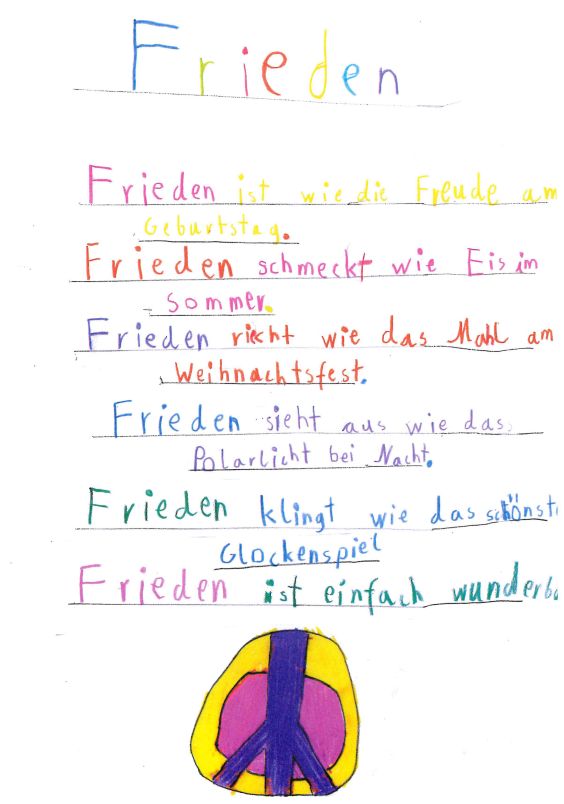 Frieden
Frieden ist wie die Freude am
Geburtstag.
Frieden schmeckt wie Eis im
Sommer.
Frieden riecht wie das Mahl am
Weihnachtsfest.
Frieden sieht aus wie das
Polarlicht bei Nacht.
Frieden klingt wie das schönst
Glockenspiel
Frieden ist einfach wunderba